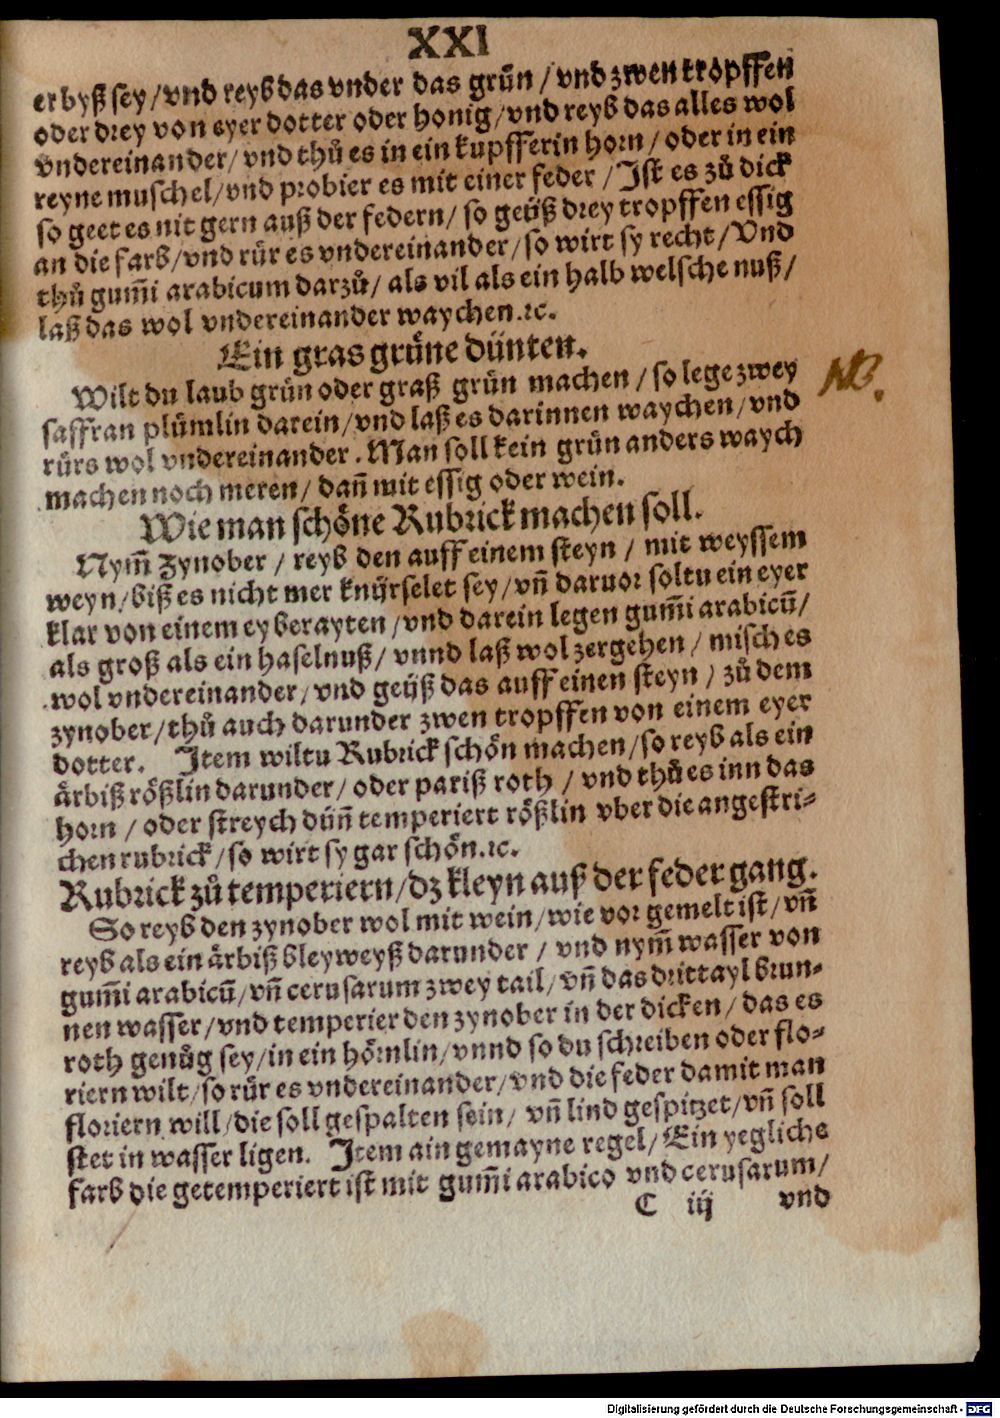 XXI
erbyß sey/vnd reyb das vnder das grün/vnd zwen tropffen
oder drey von eyer dotter oder honig/vnd reyb das alles wol
vndereinander/vnd thů es in ein kupfferin horn/oder in ein
reyne muschel/vnd probier es mit einer feder/Ist es zů dick
so geet es nit gern auß der federn/so geüß drey tropffen essig
an die farb/vnd rür es vndereinander/so wirt sy recht/Vnd
thů gum̃i arabicum darzů/als vil als ein halb welsche nuß/
laß das wol vndereinander waychen.ꝛc.
Ein gras grüne dünten.
Wilt du laub grün oder graß grün machen/so lege zwey
saffran plümlin darein/vnd laß es darinnen waychen/vnd
rürs wol vndereinander. Man soll kein grün anders waych
machen noch meren/dañ mit essig oder wein.
NB.
Wie man schöne Rubrick machen soll.
Nym̃ Zynober/reyb den auff einem steyn/mit weyssem
weyn/biß es nicht mer knürselet sey/vñ daruor soltu ein eyer
klar von einem ey berayten/vnd darein legen gum̃i arabicũ/
als groß als ein haselnuß/vnnd laß wol zergehen/misch es
wol vndereinander/vnd geüß das auff einen steyn/zů dem
zynober/thů auch darunder zwen tropffen von einem eyer
dotter. Item wiltu Rubrick schön machen/so reyb als ein
ärbiß rößlin darunder/oder pariß roth/vnd thů es inn das
horn/oder streych düñ temperiert rößlin vber die angestri-
chen rubrick/so wirt sy gar schön.ꝛc.
Rubrick zů temperiern/dz kleyn auß der feder gang.
So reyb den zynober wol mit wein/wie vor gemelt ist/vñ
reyb als ein ärbiß bleyweyß darunder/vnd nym̃ wasser von
gum̃i arabicũ/vñ cerusarum zwey tail/vñ das drittayl brun-
nen wasser/vnd temperier den zynober in der dicken/das es
roth genůg sey/in ein hörnlin/vnnd so du schreiben oder flo-
riern wilt/so rür es vndereinander/vnd die feder damit man
floriern will/die soll gespalten sein/vñ lind gespitzet/vñ soll
stet in wasser ligen. Item ain gemayne regel/Ein yegliche
farb die getemperiert ist mit gum̃i arabico vnd cerusarum/
C iij vnd
Digitalisierung gefördert durch die Deutsche Forschungsgemeinschaft - DFG